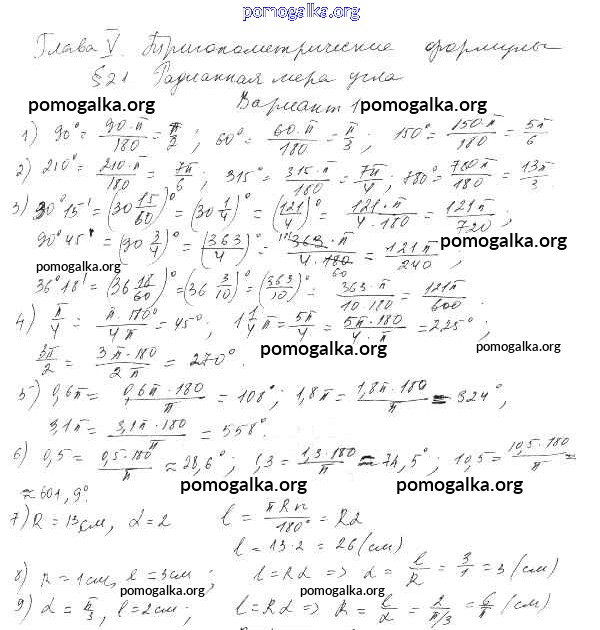 pomogalka.org
Глава V. Тригонометрические формулы
§ 21 Радианная мера угла
Вариант 1
pomogalka.org pomogalka.org
1) 90° = 90·π/180 = π/2; 60° = 60·π/180 = π/3; 150° = 150·π/180 = 5π/6
2) 210° = 210·π/180 = 7π/6; 315° = 315·π/180 = 7π/4; 780° = 780π/180 = 13π/3.
3) 30°15' = (30 15/60)° = (30 1/4)° = (121/4)° = 121·π/4·180 = 121π/720;
90°45' = (90 3/4)° = (363/4)° = 363·π/4·180 = 121π/240,
pomogalka.org
pomogalka.org
36°18' = (36 18/60)° = (36 3/10)° = (363/10)° = 363·π/10·180 = 121π/600.
4) π/4 = π·180°/4π = 45°; 1 1/4 π = 5π/4 = 5π·180/4·π = 225°;
3π/2 = 3π·180/2π = 270°.
pomogalka.org pomogalka.org
5) 0,6π = 0,6π·180/π = 108°; 1,8π = 1,8π·180/π = 324°,
3,1π = 3,1π·180/π = 558°.
6) 0,5 = 0,5·180°/π ≈ 28,6°; 1,3 = 1,3·180/π = 74,5°; 10,5 = 10,5·180/π =
≈ 601,9°
pomogalka.org pomogalka.org
7) R = 13см, α = 2 l = πRn/180° = Rα
l = 13·2 = 26 (см)
8) R = 1см, l = 3см; l = Rα => α = l/R = 3/1 = 3 (см)
pomogalka.org pomogalka.org
9) α = π/3, l = 2см; l = Rα => R = l/α = 2/π/3 = 6/π (см)